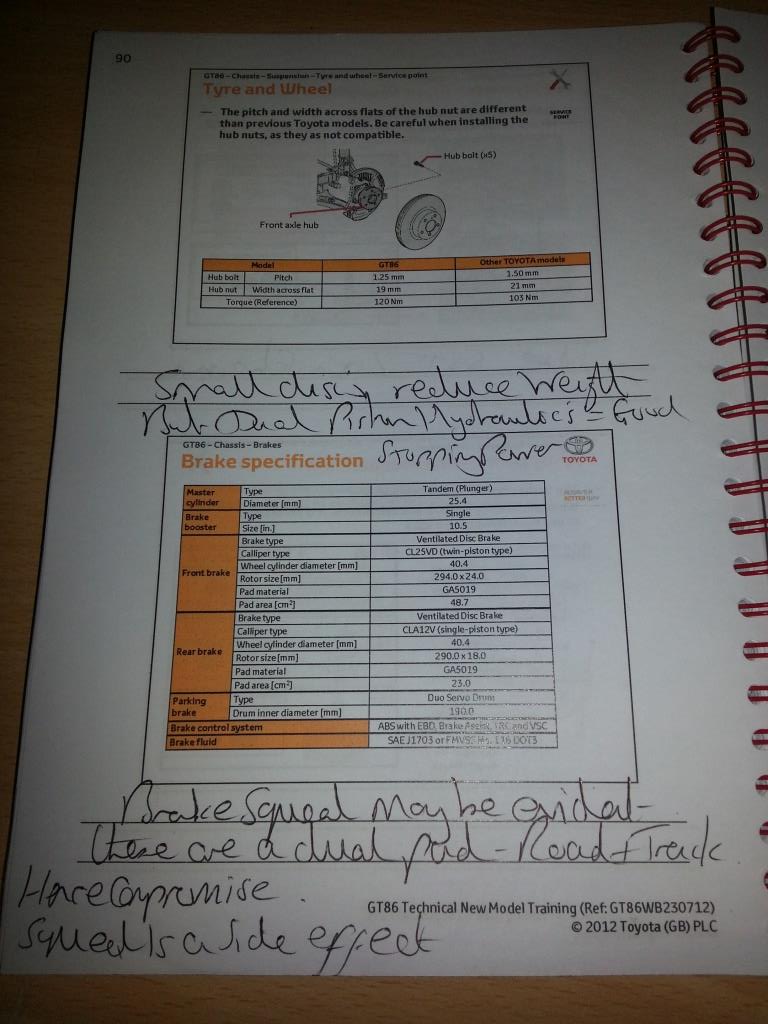 90
GT86 – Chassis – Suspension – Tyre and wheel – Service point
Tyre and Wheel
SERVICE POINT
— The pitch and width across flats of the hub nut are different
than previous Toyota models. Be careful when installing the
hub nuts, as they as not compatible.
Hub bolt (x5)
Front axle hub
Model GT86 Other TOYOTA models
Hub bolt Pitch 1.25 mm 1.50 mm
Hub nut Width across flat 19 mm 21 mm
Torque (Reference) 120 Nm 103 Nm
Small discs, reduce Weight
But Dual Piston Hydraulics = Good
Stopping Power
GT86 – Chassis – Brakes
Brake specification
TOYOTA
Master cylinder Type Tandem (Plunger)
Diameter [mm] 25.4
Brake booster Type Single
Size [in.] 10.5
Front brake Brake type Ventilated Disc Brake
Calliper type CL25VD (twin-piston type)
Wheel cylinder diameter [mm] 40.4
Rotor size [mm] 294.0 x 24.0
Pad material GA5019
Pad area [cm²] 48.7
Rear brake Brake type Ventilated Disc Brake
Calliper type CLA12V (single-piston type)
Wheel cylinder diameter [mm] 40.4
Rotor size [mm] 290.0 x 18.0
Pad material GA5019
Pad area [cm²] 23.0
Parking brake Type Duo Servo Drum
Drum inner diameter [mm] 190.0
Brake control system ABS with EBD, Brake Assist, TRC and VSC
Brake fluid SAE J1703 or FMVSS No. 116 DOT3
Brake Squeal may be evident –
these are a dual pad – Road + Track
Hence Compromise.
Squeal Is a side effect
GT86 Technical New Model Training (Ref: GT86WB230712)
© 2012 Toyota (GB) PLC